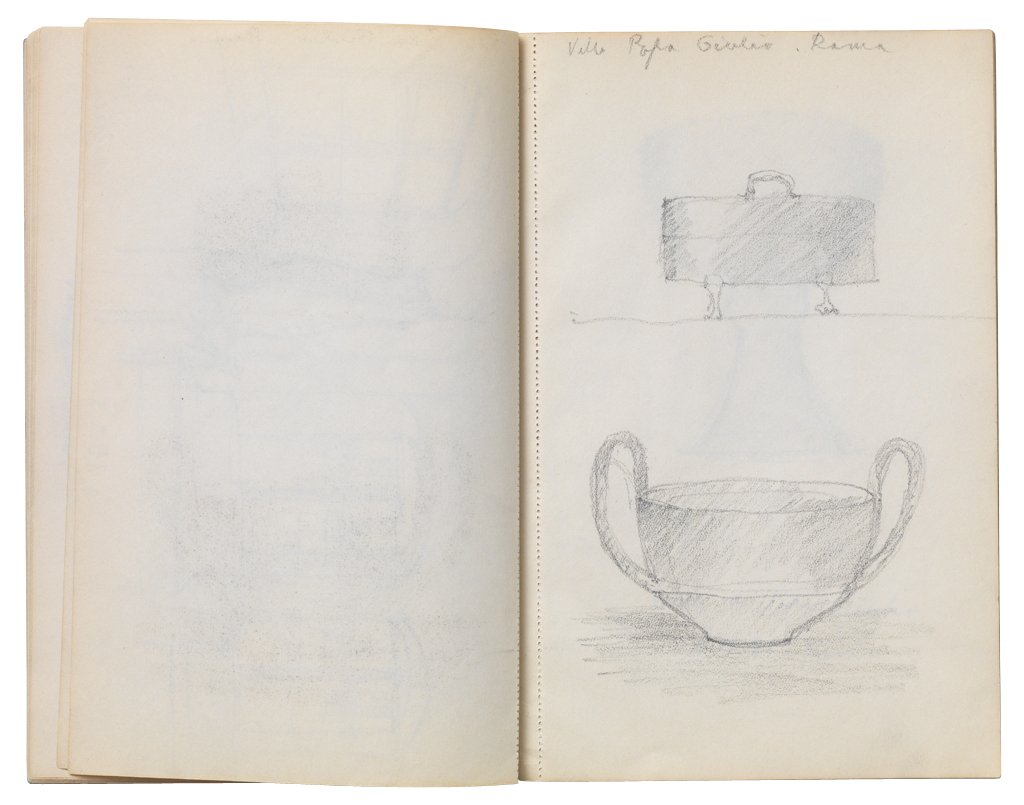 Villa Papa Giulio . Roma